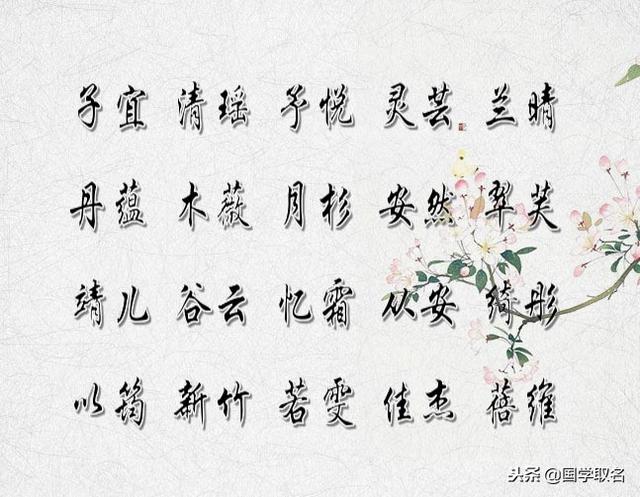 子宜 清瑶 予悦 灵芸 兰晴
丹蕴 木薇 月杉 安然 翠芙
靖儿 谷云 忆霜 从安 绮彤
以筠 新竹 若雯 佳杰 蓓维
头条 @国学取名